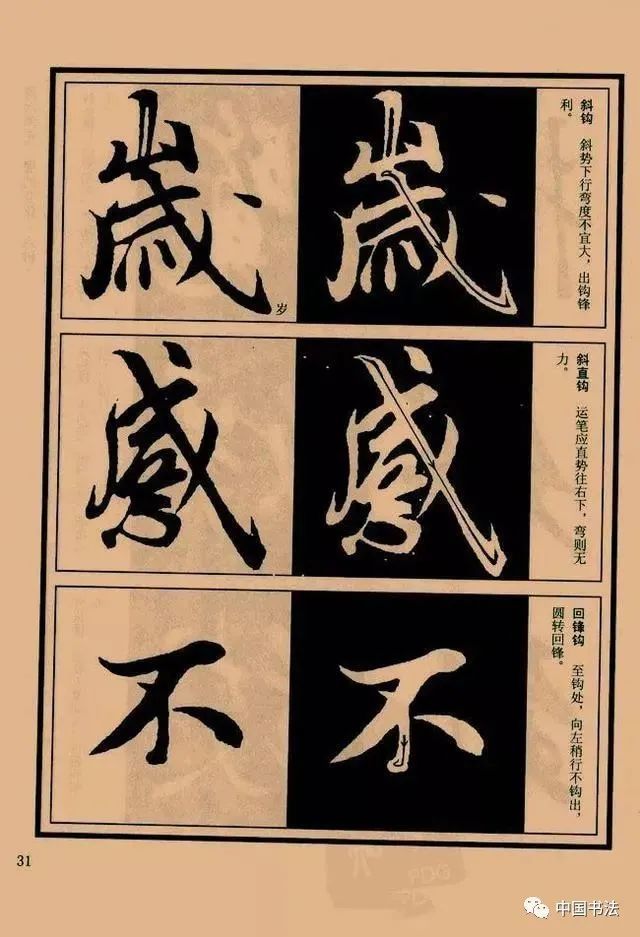 歲
歲
岁
斜钩　斜势下行弯度不宜大，出钩锋
利。
感
感
斜直钩　运笔应直势往右下，弯则无
力。
不
不
回锋钩　至钩处，向左稍行不钩出，
圆转回锋。
31
PDG
中国书法